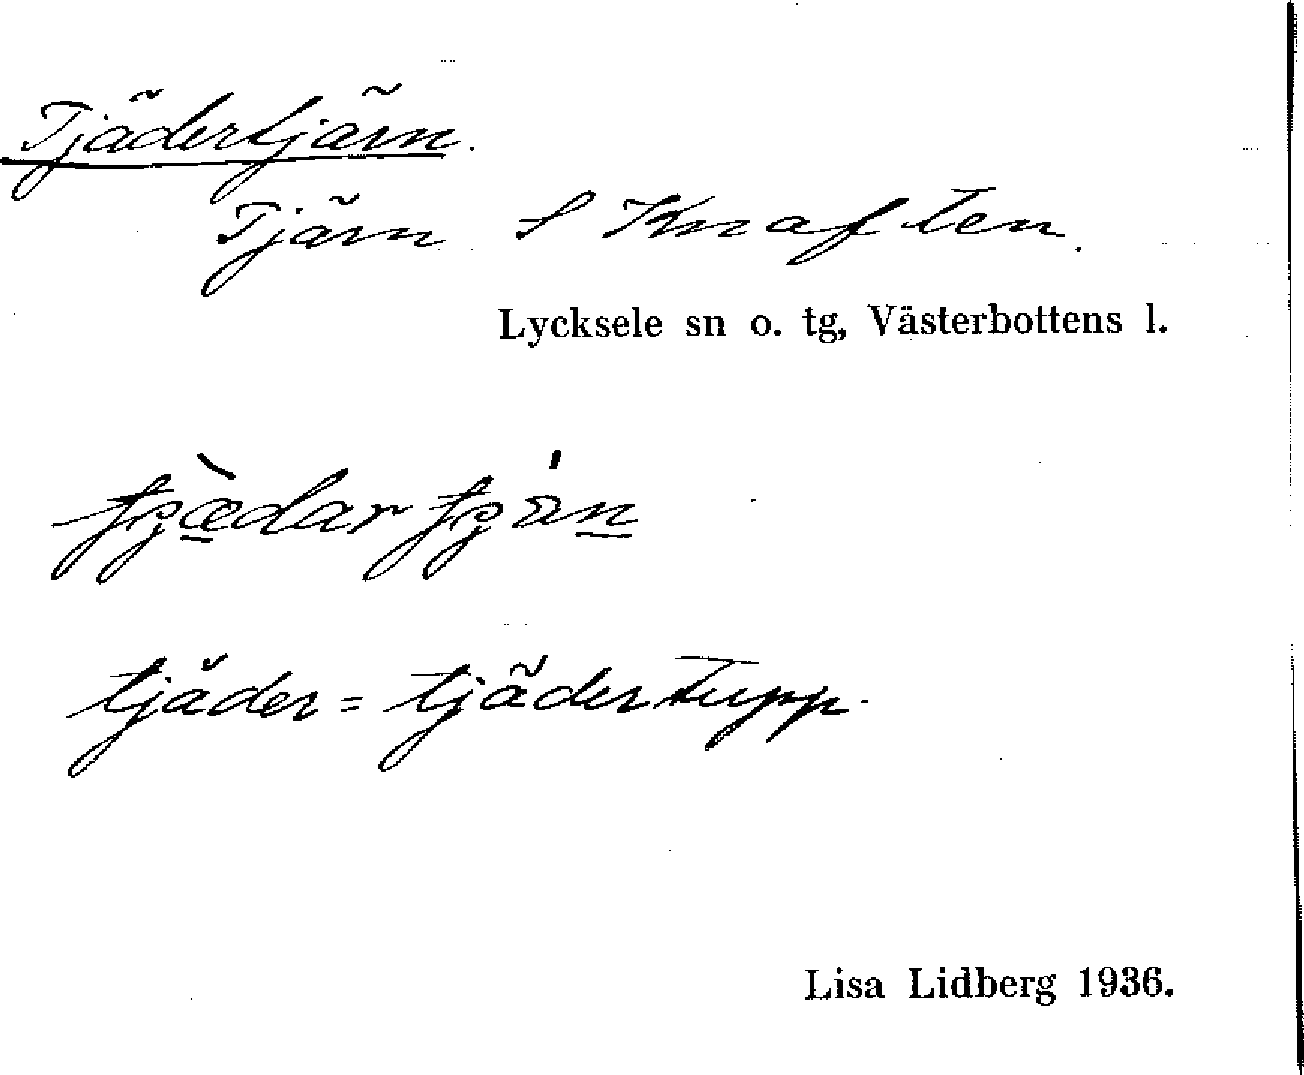 Tjädertjärn.
Tjärn S Knaften.
Lycksele sn o. tg, Västerbottens l.
tjäder = tjädertupp.
Lisa Lidberg 1936.